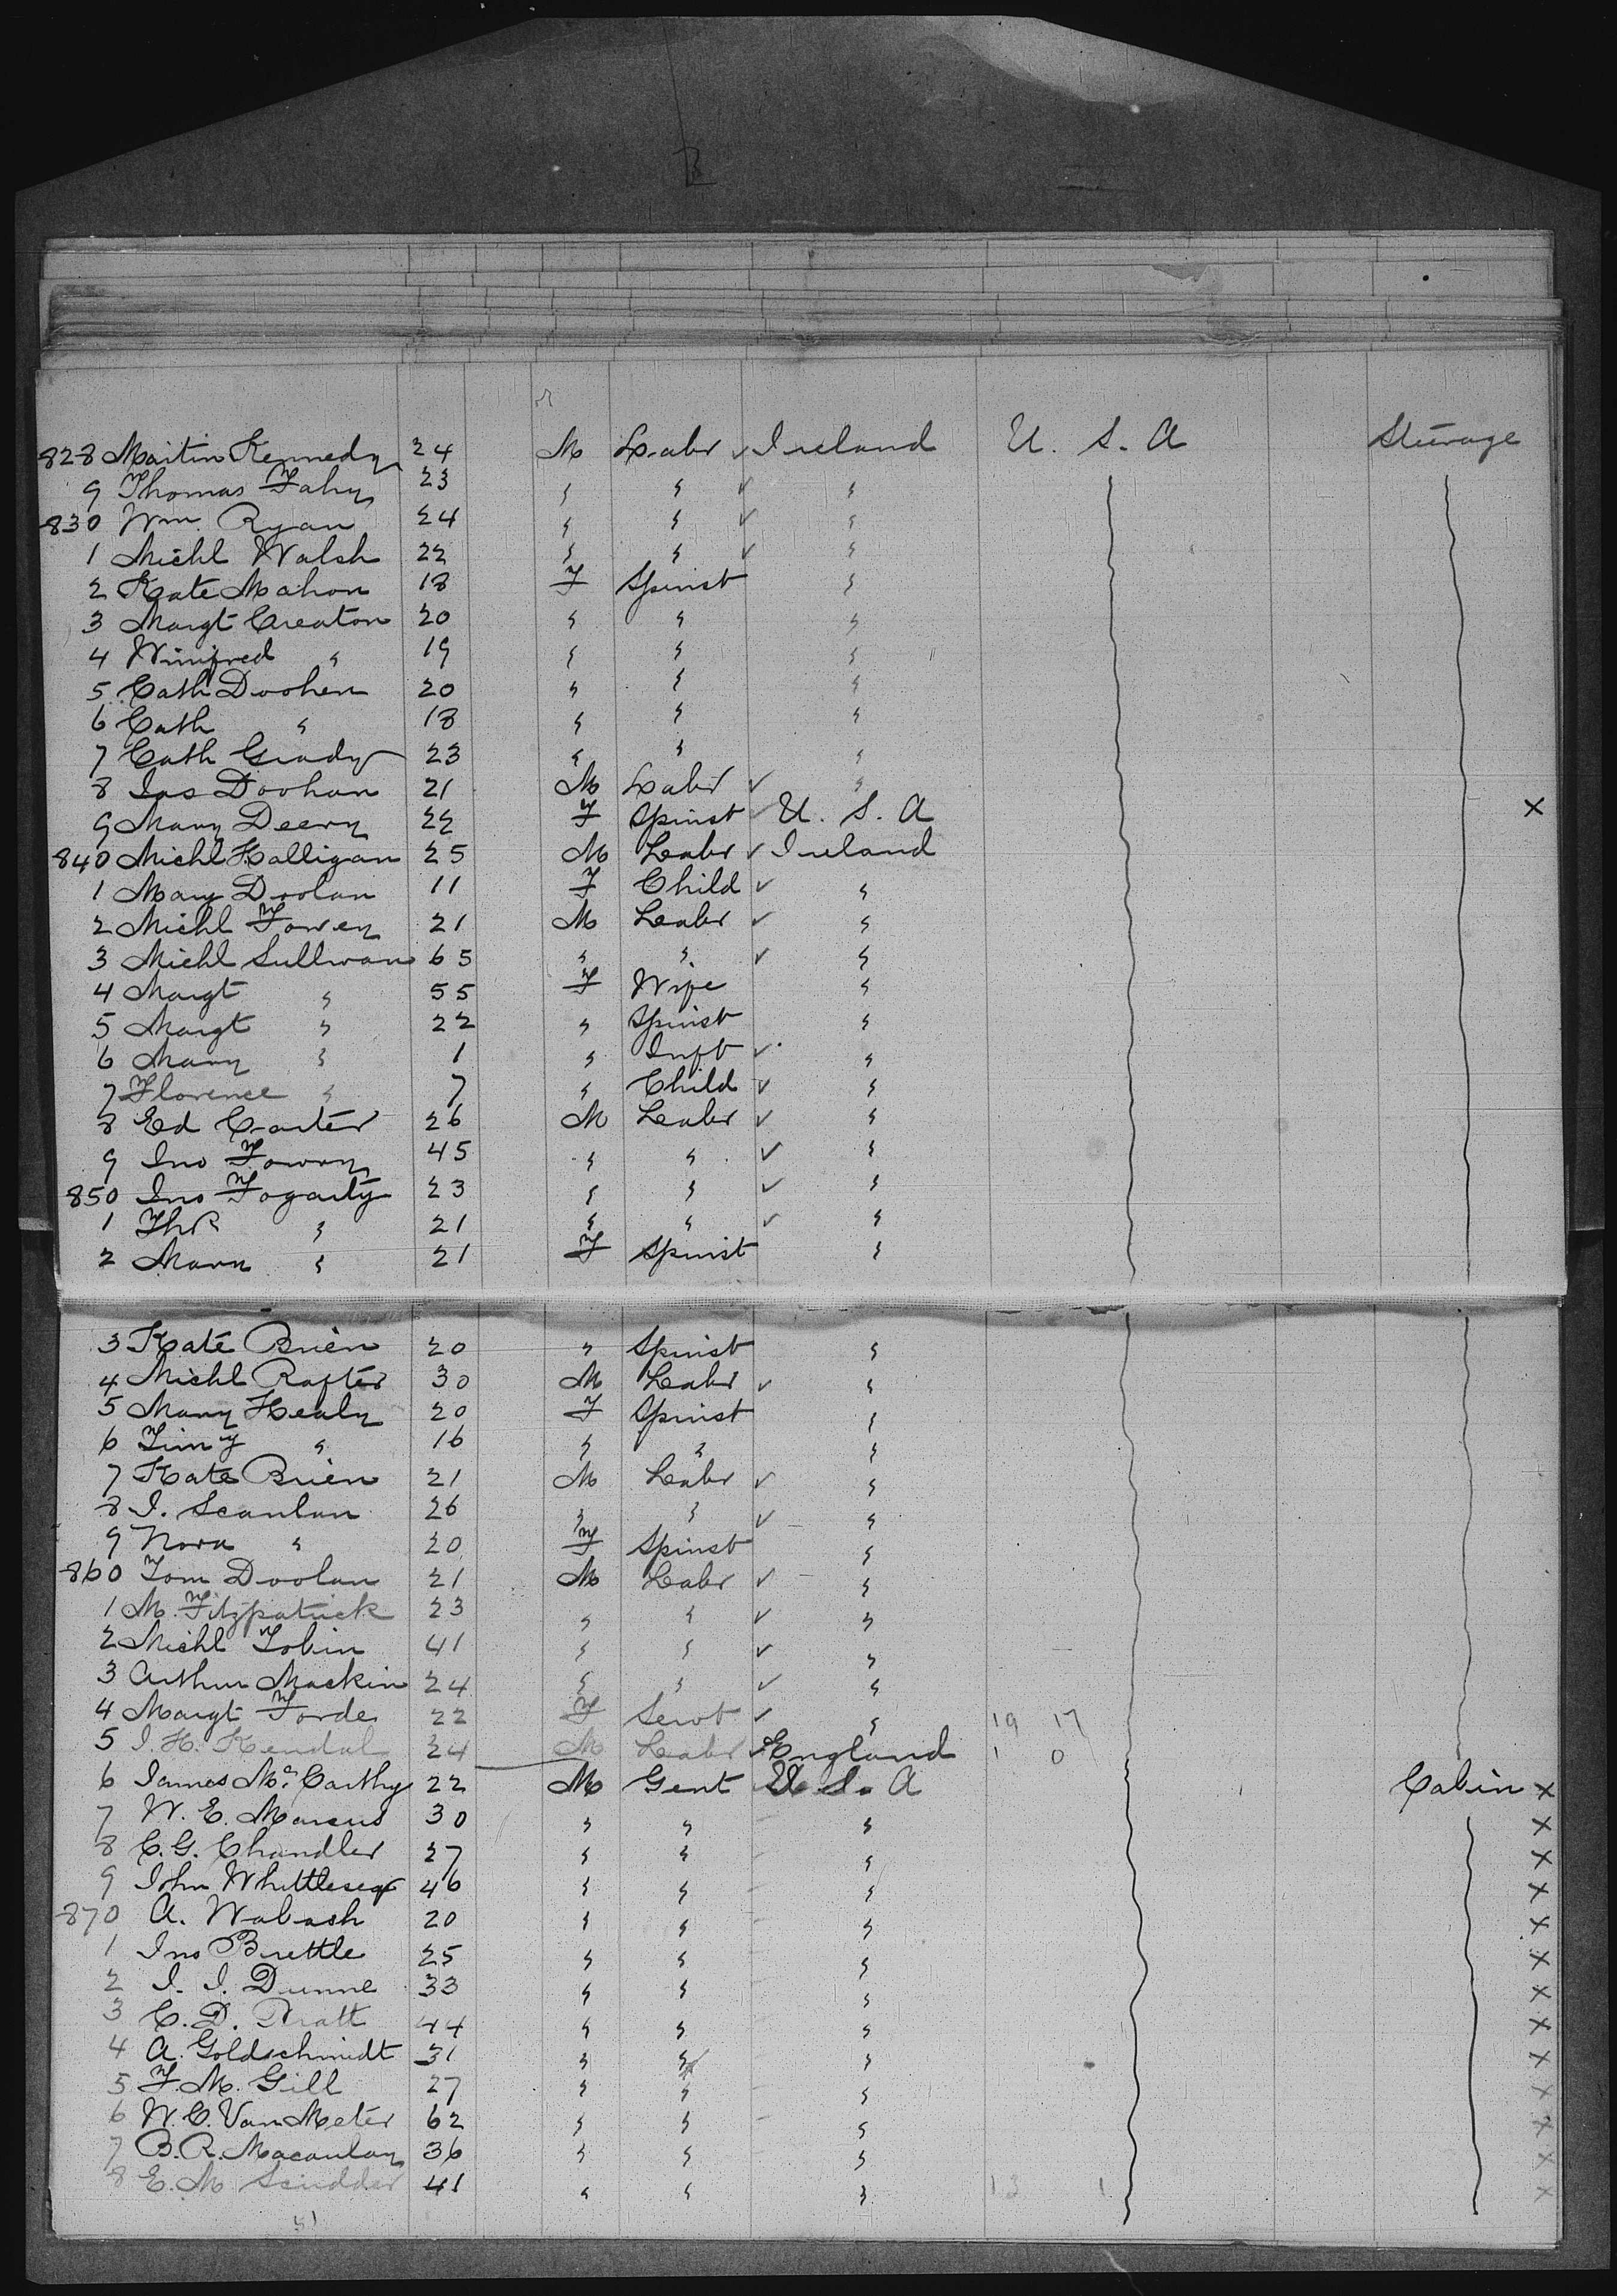 828 Martin Kennedy 24 M Labr ✓ Ireland U. S. A Steerage
9 Thomas Fahy 23 " " ✓ "
830 Wm. Ryan 24 " " ✓ "
1 Michl Walsh 22 " " ✓ "
2 Kate Mahon 18 F Spinst "
3 Margt Creaton 20 " " "
4 Winifred " 19 " " "
5 Cath Doohen 20 " " "
6 Cath " 18 " " "
7 Cath Grady 23 " " "
8 Jas Doohan 21 M Labr ✓ "
9 Mary Deery 22 F Spinst ✓ U. S. A X
840 Michl Halligan 25 M Labr ✓ Ireland
1 Mary Doolan 11 F Child ✓ "
2 Michl Fowey 21 M Labr ✓ "
3 Michl Sullivan 65 " " ✓ "
4 Margt " 55 F Wife "
5 Margt " 22 " Spinst "
6 Mary " 1 " Inft ✓ "
7 Florence " 7 " Child ✓ "
8 Ed Carter 26 M Labr ✓ "
9 Jno 45 " " ✓ "
850 Jno Fogarty 23 " " ✓ "
1 " 21 " " ✓ "
2 Mary " 21 F Spinst "
3 Kate Brien 20 " Spinst "
4 Michl Rafter 30 M Labr ✓ "
5 Mary Healy 20 F Spinst "
6 Timy " 16 " " "
7 Kate Brien 21 M Labr ✓ "
8 J. Scanlan 26 " " ✓ "
9 Nora " 20 F Spinst "
860 Tom Doolan 21 M Labr ✓ "
1 M. Fitzpatrick 23 " " ✓ "
2 Michl Tobin 41 " " ✓ "
3 Arthur Mackin 24 " " ✓ "
4 Margt Forde 22 F Servt ✓ " 19 17
5 J. H. Kendal 24 M Labr ✓ England 1 0
6 James Mc Carthy 22 M Gent U S. A Cabin X
7 W. E. Marcus 30 " " " X
8 C. G. Chandler 27 " " " X
9 John Whittlesey 46 " " " X
870 A. Wabash 20 " " " X
1 Jno Brettle 25 " " " X
2 J. J. Dunne 33 " " " X
3 C. D. Pratt 44 " " " X
4 A. Goldschmidt 31 " " " X
5 F. M. Gill 27 " " " X
6 W. C. Van Meter 62 " " " X
7 B. R. Macaulay 36 " " " X
8 E. M Scudder 41 " " " 13 1 X